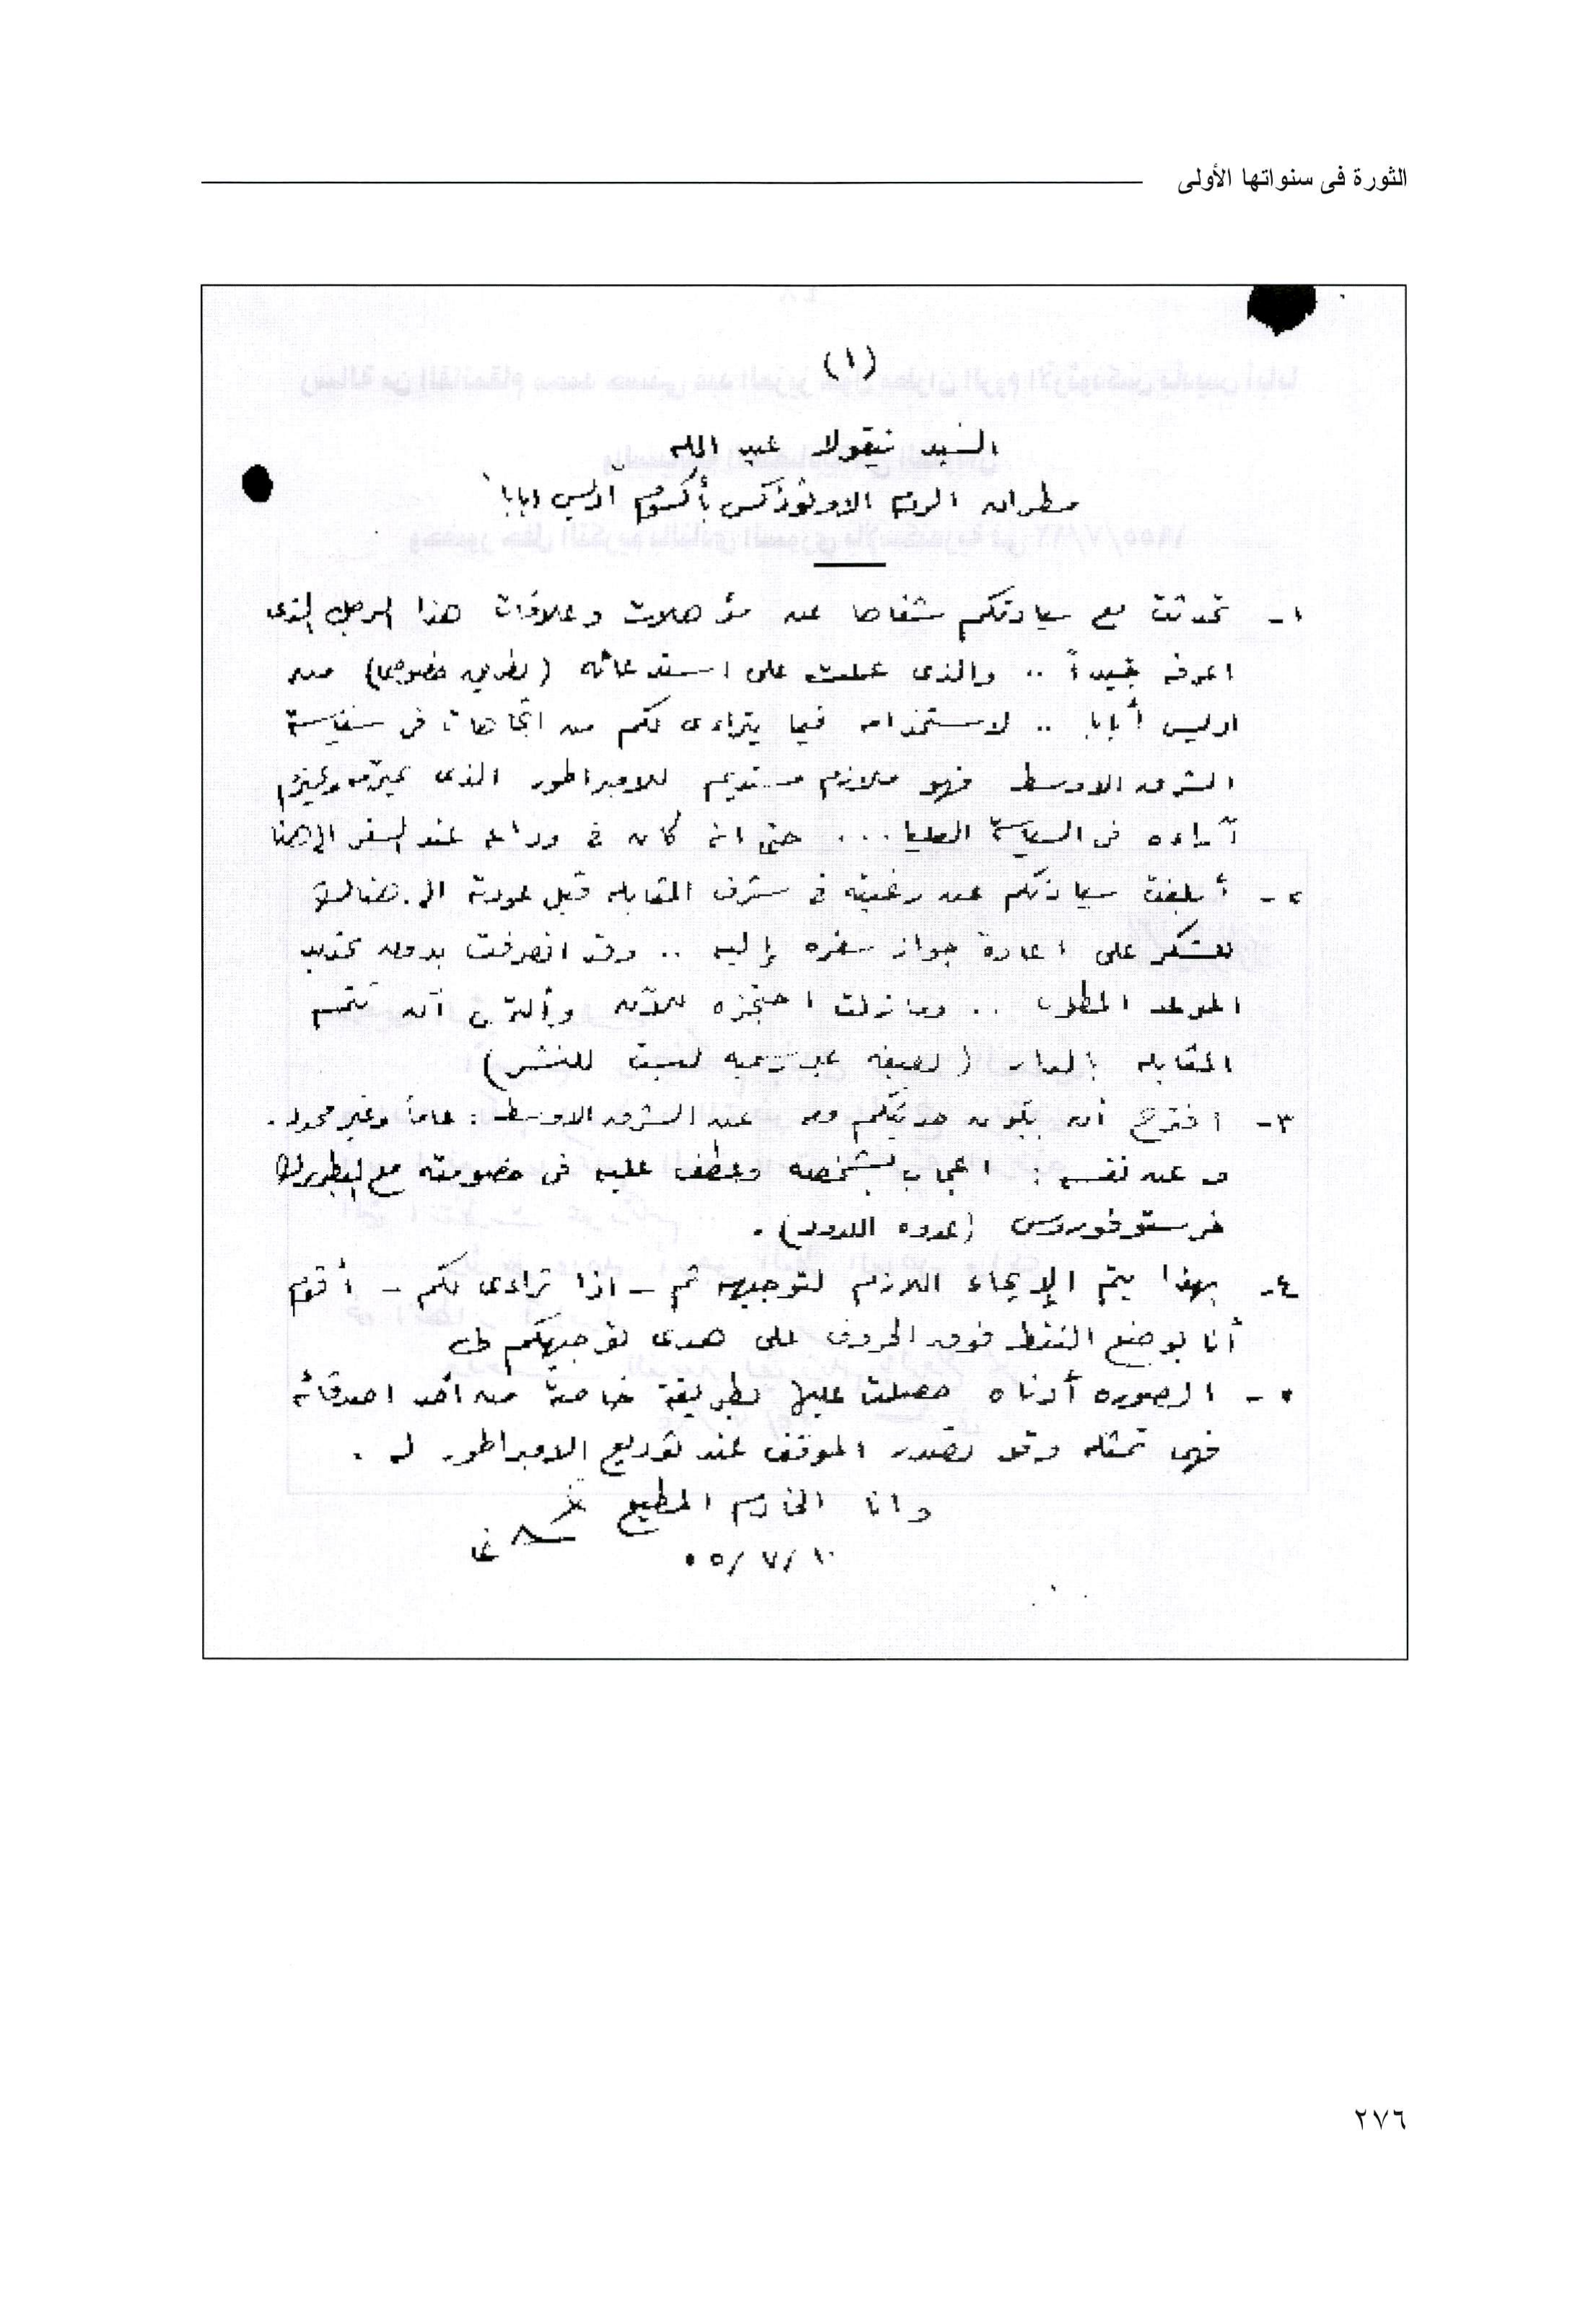 الثورة فى سنواتها الأولى
(١)
السيد نيقولا عبد الله
مطران الروم الاورثوذكس بأكسوم أديس ابابا
١- تحدثت مع سيادتكم شفاها عن مؤهلات وعلاقات هذا الرجل الذى
اعرفه جيداً .. والذى عملت على استدعائه (بغرض خصوصى) من
اديس أبابا .. لاستخدامه فيما يتراءى لكم من اتجاهات فى سياسة
الشرق الاوسط فهو ملازم مستديم للامبراطور الذى
آراءه فى السياسة العليا ... حتى انه كان فى وداعه عند السفر الى هنا
٢- أبلغت سيادتكم عن رغبته فى شرف المقابله قبل عودته الى هناك
للشكر على اعادة جواز سفره إليه .. وقد انصرفت بدون تحديد
الموعد المطلوب .. ومازلت احتجزه للآن وألتمس أن تتم
المقابله بالدار (بصفه غير رسميه ليست للنشر)
٣- اقترح أن يكون حديثكم معه عن الشرق الاوسط : عاماً وغير محدد .
و عن نفسه : اعجاب بشخصه وعطف عليه فى خصومته مع البطريرك
خرستوفوروس (عدوه اللدود) .
٤- بهذا يتم الإيحاء اللازم لتوجيهه ثم - اذا تراءى لكم - أقوم
أنا بوضع النقط فوق الحروف على هدى توجيهكم لى
٥- الصوره أدناه حصلت عليها بطريقة خاصة من أحد اصدقائه
فهى تمثله وقد تصدر الموقف عند توديع الامبراطور له .
وانا الخادم المطيع
١٠/٧/٥٥
٢٧٦